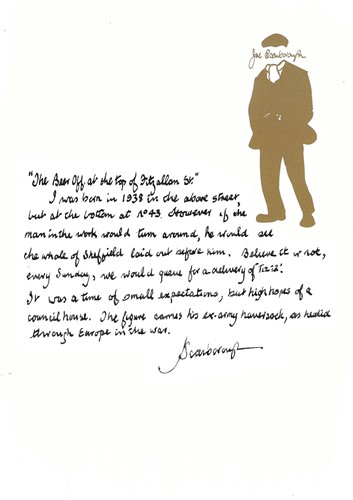 Joe Scarborough
"The Beer Off at the top of Fitzallan St."
I was born in 1938 in the above street,
but at the bottom at No 43. However if the
man in the work would turn around, he would see
the whole of Sheffield laid out before him. Believe it or not,
every Sunday, we would queue for a delivery of Tizer.
It was a time of small expectations, but high hopes of a
council house. The figure carries his ex-army haversack, as
through Europe in the war.
JScarborough